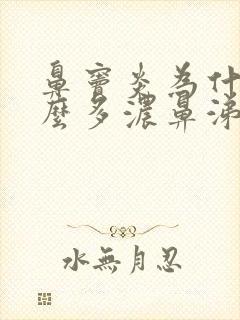 鼻竇炎為什
麼多濃鼻涕
水無月忍